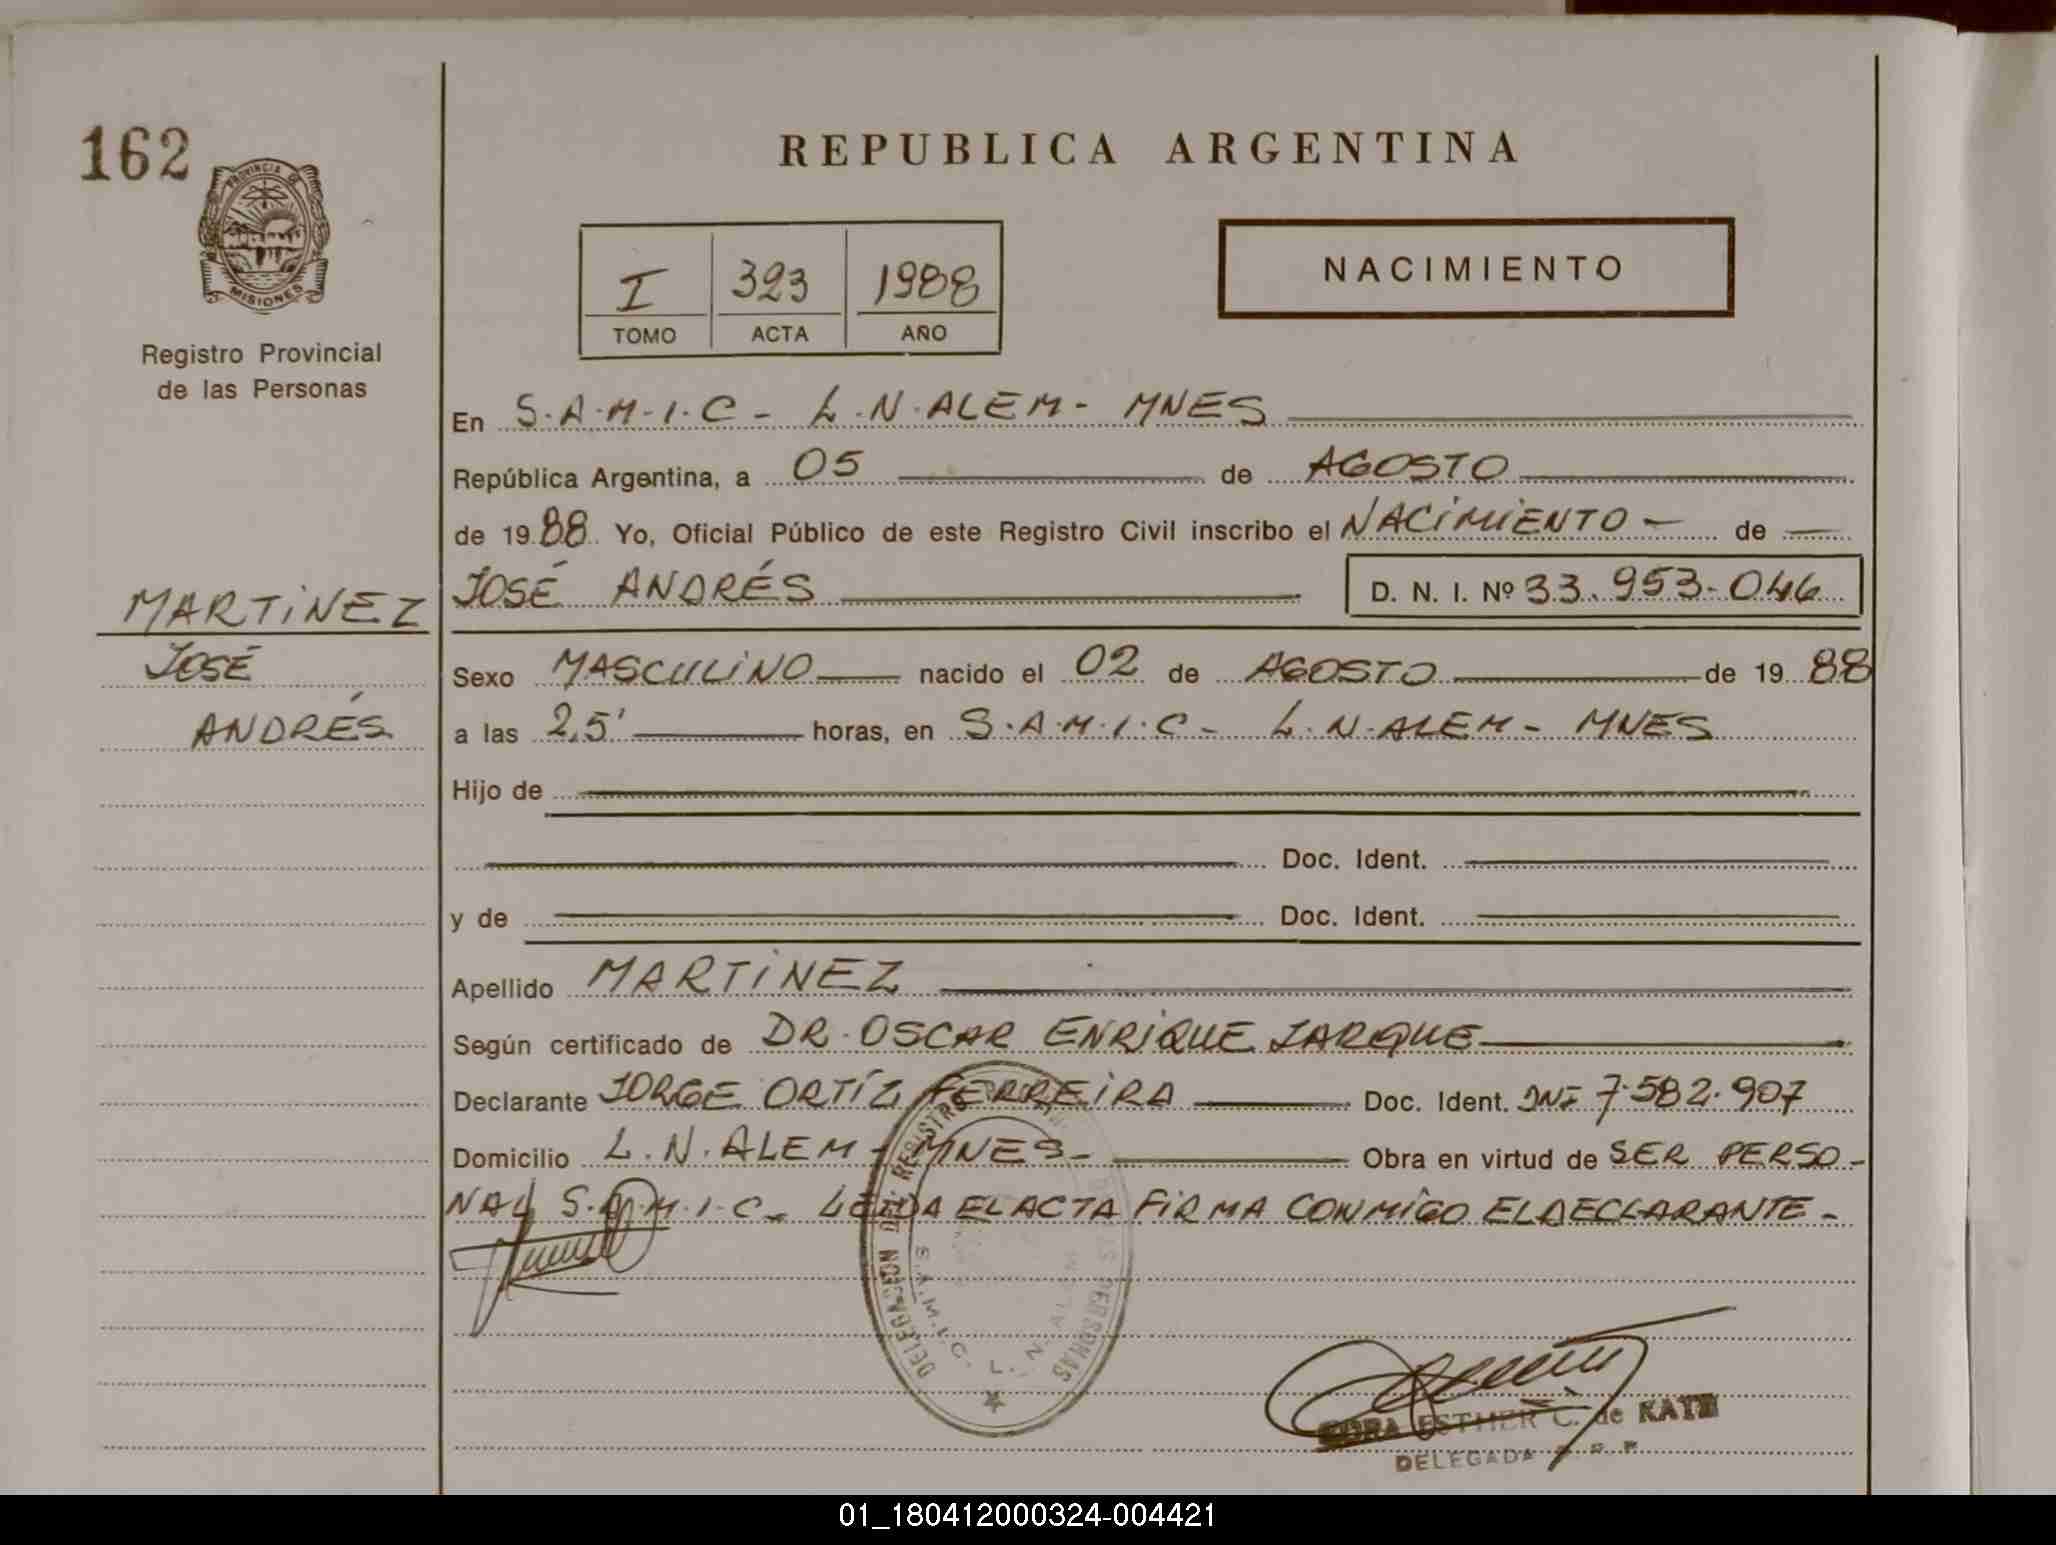 162
PROVINCIA DE
MISIONES
Registro Provincial
de las Personas
REPUBLICA ARGENTINA
I 323 1988
TOMO ACTA AÑO
NACIMIENTO
En S.A.M.I.C - L.N.ALEM - MNES
República Argentina, a 05 de AGOSTO
de 1988 Yo, Oficial Público de este Registro Civil inscribo el NACIMIENTO - de
MARTINEZ
JOSÉ
ANDRÉS
JOSÉ ANDRÉS D. N. I. Nº 33.953.046
Sexo MASCULINO nacido el 02 de AGOSTO de 1988
a las 2,5' horas, en S.A.M.I.C - L.N.ALEM - MNES
Hijo de
Doc. Ident.
y de Doc. Ident.
Apellido MARTINEZ
Según certificado de DR. OSCAR ENRIQUE JARQUE
Declarante JORGE ORTÍZ FERREIRA Doc. Ident. DNI 7.582.907
Domicilio L.N.ALEM - MNES - Obra en virtud de SER PERSO-
NAL S.A.M.I.C - LEIDA EL ACTA FIRMA CONMIGO EL DECLARANTE -
DELEGACION DEL REGISTRO DE LAS PERSONAS
S.A.M.I.C. L. N. ALEM
ESTHER C. de KATZ
DELEGADA
01_180412000324-004421